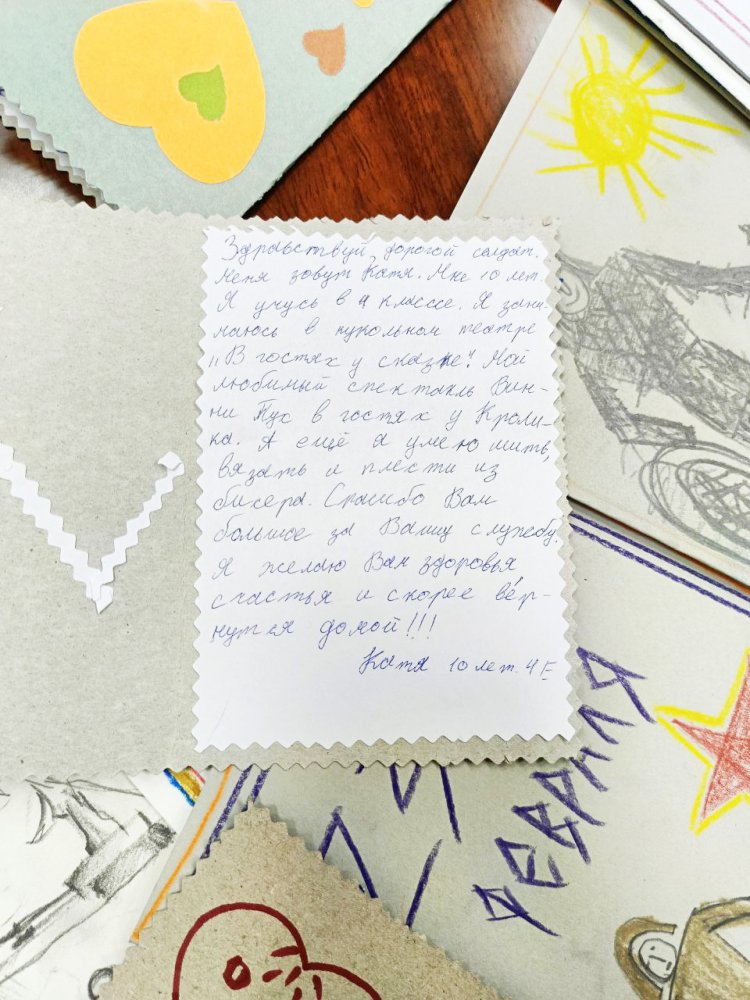 Здравствуй, дорогой солдат.
Меня зовут Катя. Мне 10 лет.
Я учусь в 4 классе. Я зани-
маюсь в кукольном театре
„В гостях у сказке". Мой
любимый спектакль Вин-
ни Пух в гостях у Кроли-
ка. А ещё я умею шить,
вязать и плести из
бисера. Спасибо Вам
большое за Вашу службу.
Я желаю Вам здоровья
счастья и скорее вер-
нутся домой!!!
Катя 10 лет. 4 Г
ФЕВРАЛЯ